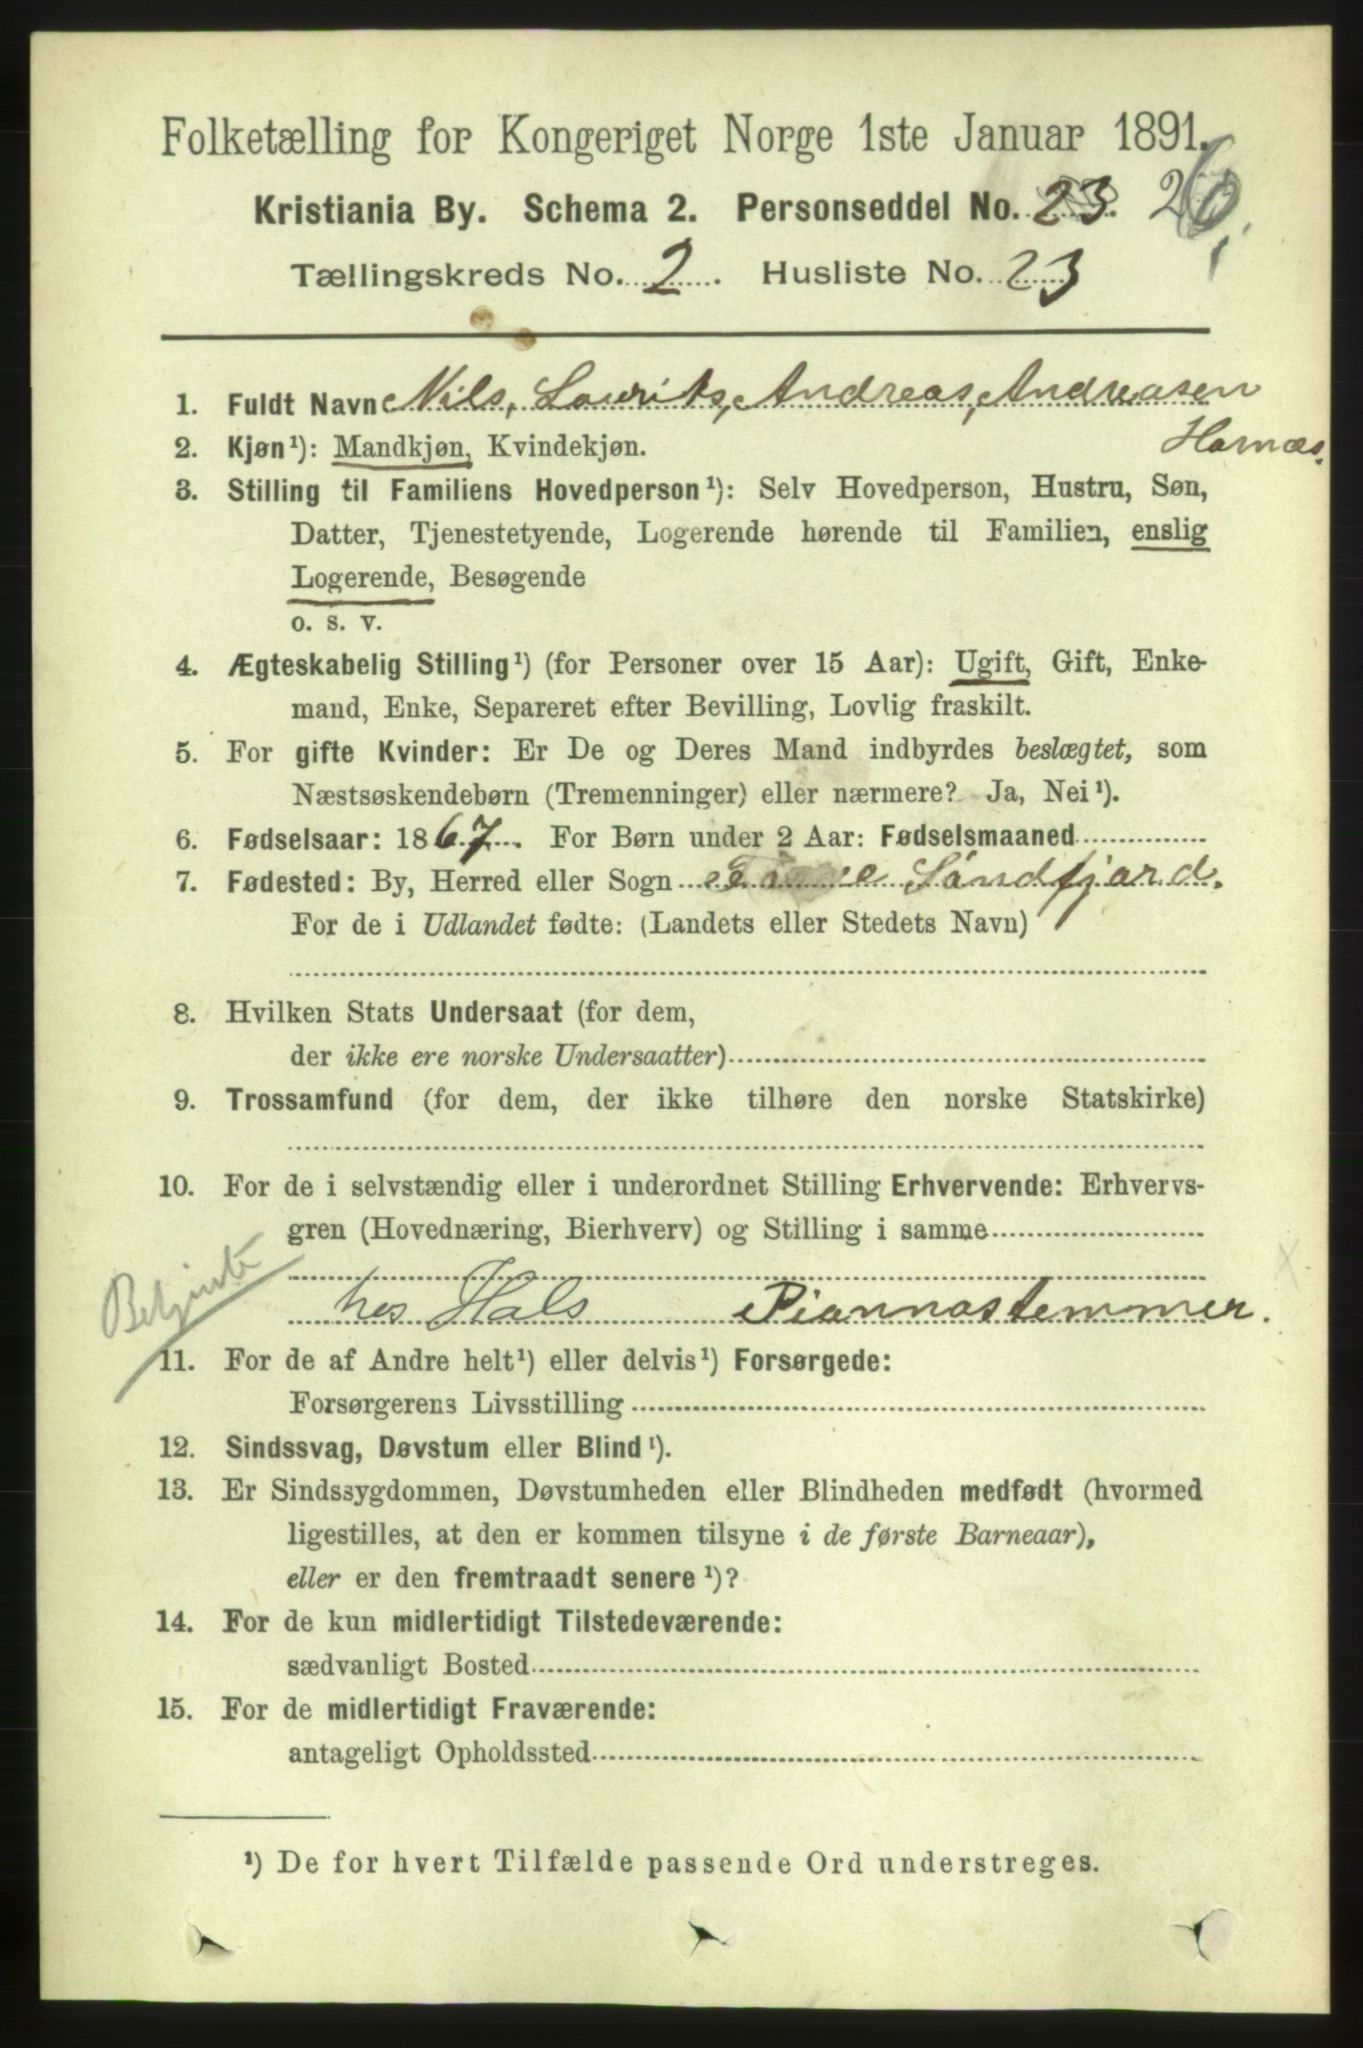 Folketælling for Kongeriget Norge 1ste Januar 1891.
Kristiania By. Schema 2. Personseddel No. 23. 26
Tællingskreds No. 2. Husliste No. 23
1. Fuldt Navn Nils, Laurits, Andreas, Andreasen
Hornæs.
2. Kjøn¹): Mandkjøn, Kvindekjøn.
3. Stilling til Familiens Hovedperson¹): Selv Hovedperson, Hustru, Søn,
Datter, Tjenestetyende, Logerende hørende til Familien, enslig
Logerende, Besøgende
o. s. v.
4. Ægteskabelig Stilling¹) (for Personer over 15 Aar): Ugift, Gift, Enke-
mand, Enke, Separeret efter Bevilling, Lovlig fraskilt.
5. For gifte Kvinder: Er De og Deres Mand indbyrdes beslægtet, som
Næstsøskendebørn (Tremenninger) eller nærmere? Ja, Nei¹).
6. Fødselsaar: 1867. For Børn under 2 Aar: Fødselsmaaned
7. Fødested: By, Herred eller Sogn Søndfjord.
For de i Udlandet fødte: (Landets eller Stedets Navn)
8. Hvilken Stats Undersaat (for dem,
der ikke ere norske Undersaatter)
9. Trossamfund (for dem, der ikke tilhøre den norske Statskirke)
10. For de i selvstændig eller i underordnet Stilling Erhvervende: Erhvervs-
gren (Hovednæring, Bierhverv) og Stilling i samme
Betjente
hos Hals Piannostemmer.
11. For de af Andre helt¹) eller delvis¹) Forsørgede:
Forsørgerens Livsstilling
12. Sindssvag, Døvstum eller Blind¹).
13. Er Sindssygdommen, Døvstumheden eller Blindheden medfødt (hvormed
ligestilles, at den er kommen tilsyne i de første Barneaar),
eller er den fremtraadt senere¹)?
14. For de kun midlertidigt Tilstedeværende:
sædvanligt Bosted
15. For de midlertidigt Fraværende:
antageligt Opholdssted
¹) De for hvert Tilfælde passende Ord understreges.